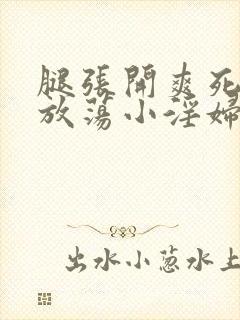 腿張開爽死
放蕩小淫婦
出水小蔥水上